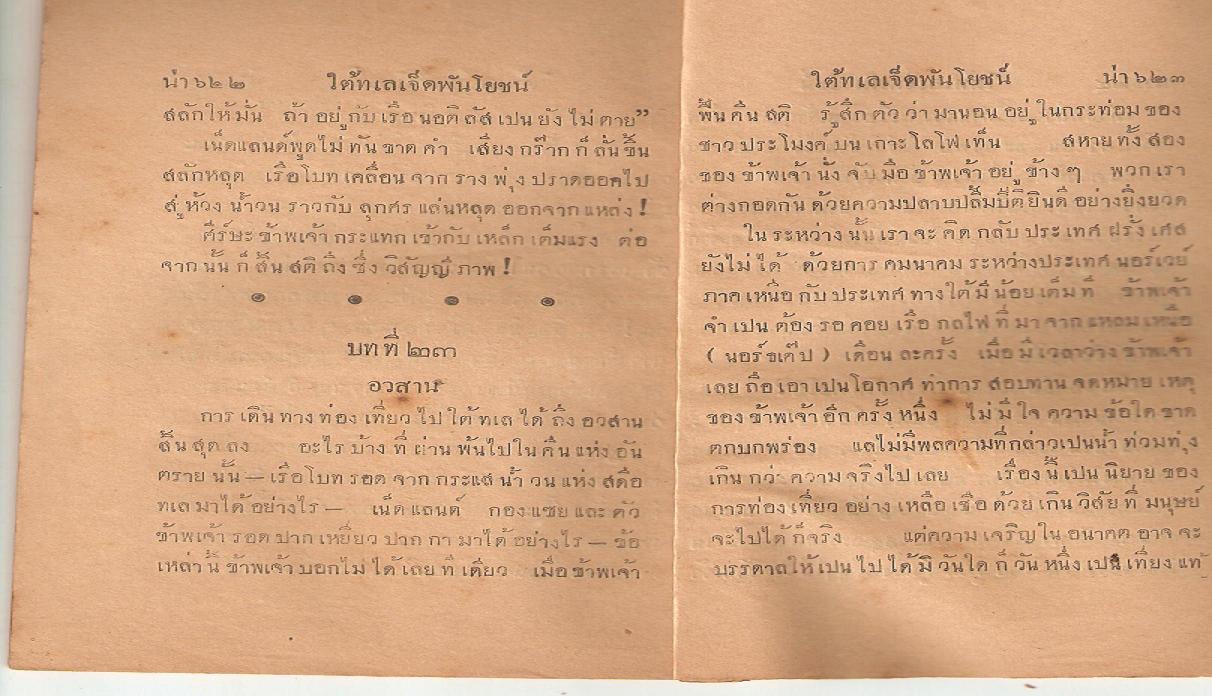 น่า ๖๒๒ ใต้ทเลเจ็ดพันโยชน์
สลักให้มั่น ถ้า อยู่ กับ เรือ นอติลัส เปน ยัง ไม่ ตาย”
เน็ดแลนด์พูดไม่ ทัน ขาด คำ เสียง กร๊าก ก็ ลั่น ขึ้น
สลักหลุด เรือโบท เคลื่อน จาก ราง พุ่ง ปราดออกไป
สู่ ห้วง น้ำวน ราวกับ ลูกศร แล่นหลุด ออกจาก แหล่ง !
ศีร์ษะ ข้าพเจ้า กระแทก เข้ากับ เหล็ก เต็มแรง ต่อ
จาก นั้น ก็ สิ้น สติ ถึง ซึ่ง วิสัญญี ภาพ !
๏ ๏ ๏ ๏
บท ที่ ๒๓
อวสาน
การ เดิน ทาง ท่อง เที่ยว ไป ใต้ ทเล ได้ ถึง อวสาน
สิ้น สุด ลง อะไร บ้าง ที่ ผ่าน พ้นไป ใน คืน แห่ง อัน
ตราย นั้น — เรือโบท รอด จาก กระแส น้ำ วน แห่ง สดือ
ทเล มาได้ อย่างไร — เน็ด แลนด์ กองแซย และ ตัว
ข้าพเจ้า รอด ปาก เหยี่ยว ปาก กา มาได้ อย่างไร — ข้อ
เหล่า นี้ ข้าพเจ้า บอกไม่ ได้ เลย ที เดียว เมื่อ ข้าพเจ้า
ใต้ทเลเจ็ดพันโยชน์ น่า ๖๒๓
ฟื้น คืน สติ รู้สึก ตัว ว่า มานอน อยู่ ในกระท่อม ของ
ชาว ประโมงค์ บน เกาะ โลโฟเท็น สหาย ทั้ง สอง
ของ ข้าพเจ้า นั่ง จับ มือ ข้าพเจ้า อยู่ ข้าง ๆ พวก เรา
ต่างกอดกัน ด้วยความปลาบปลื้มปีติยินดี อย่างยิ่งยวด
ใน ระหว่าง นั้น เรา จะ คิด กลับ ประเทศ ฝรั่งเศส
ยังไม่ ได้ ด้วยการ คมนาคม ระหว่างประเทศ นอร์เวย์
ภาค เหนือ กับ ประเทศ ทางใต้ มี น้อย เต็ม ที ข้าพเจ้า
จำ เปน ต้อง รอ คอย เรือ กลไฟ ที่ มา จาก แหลม เหนือ
( นอร์ธเค๊ป ) เดือน ละครั้ง เมื่อ มี เวลาว่าง ข้าพเจ้า
เลย ถือ เอา เปนโอกาศ ทำการ สอบทาน จดหมาย เหตุ
ของ ข้าพเจ้า อีก ครั้ง หนึ่ง ไม่ มี ใจ ความ ข้อใด ขาด
ตกบกพร่อง แลไม่มีพลความที่กล่าวเปนน้ำ ท่วมทุ่ง
เกิน กว่า ความ จริงไป เลย เรื่อง นี้ เปน นิยาย ของ
การท่อง เที่ยว อย่าง เหลือ เชื่อ ด้วย เกิน วิสัย ที่ มนุษย์
จะไปได้ ก็จริง แต่ความ เจริญใน อนาคต อาจ จะ
บรรดาลให้ เปน ไป ได้ มิ วันใด ก็ วัน หนึ่ง เปน เที่ยง แท้